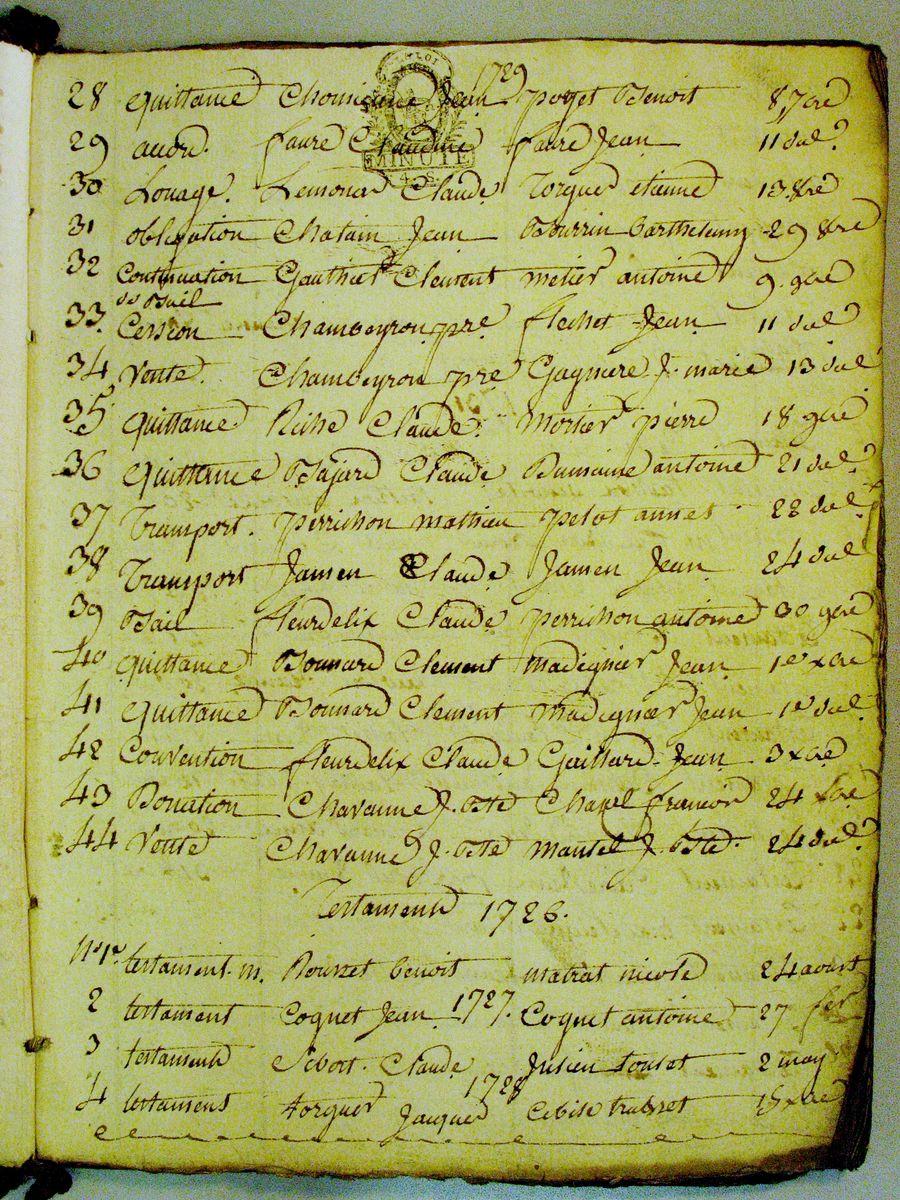 1729
28 quittance Jean poyet Benoit 8 7bre
MINUTE
29 audu. faure Claudine faure Jean 11 dud.
30 Louage. Claude Torguet etienne 13. 8bre
31 obligation Chatain Jean Bourrin barthelemy 29 8bre
32 Continuation Gauthier Clement metier antoine 9. 9bre
du Bail
33. Cession Chambeyron pre flechet Jean 11 dud
34 Vente. Chambeyron pre Gagniere J. marie 13 dud
35 quittance Claude. Mortier pierre 18 9bre
36 quittance Bajard Claude Dumaine antoine 21 dud.
37 Transport. perrichon mathieu pelot annet. 22 dud.
38 Transport Jamen Claude Jamen Jean 24 dud
39 Bail fleurdelix Claude perrichon antoine 30 9bre
40 quittance Bonnard Clement madignier Jean 1er xbre
41 quittance Bonnard Clement Madignier Jean 1er dud.
42 Convention fleurdelix Claude Gaillard Jean 3 xbre
43 Donation Chavanne J. Bte Chapel francois 24 xbre
44 Vente Chavanne J. Bte mantel J. Bte. 24 dud.
Testaments 1726.
No. 1er testament. m. Rouzet benoit matrat nicole 24 aoust
1727.
2 testament Coquet Jean Coquet antoine 27 fer
3 testament Claude Julien 2 may
1728
4 testament torguet Jacques 15 xbre